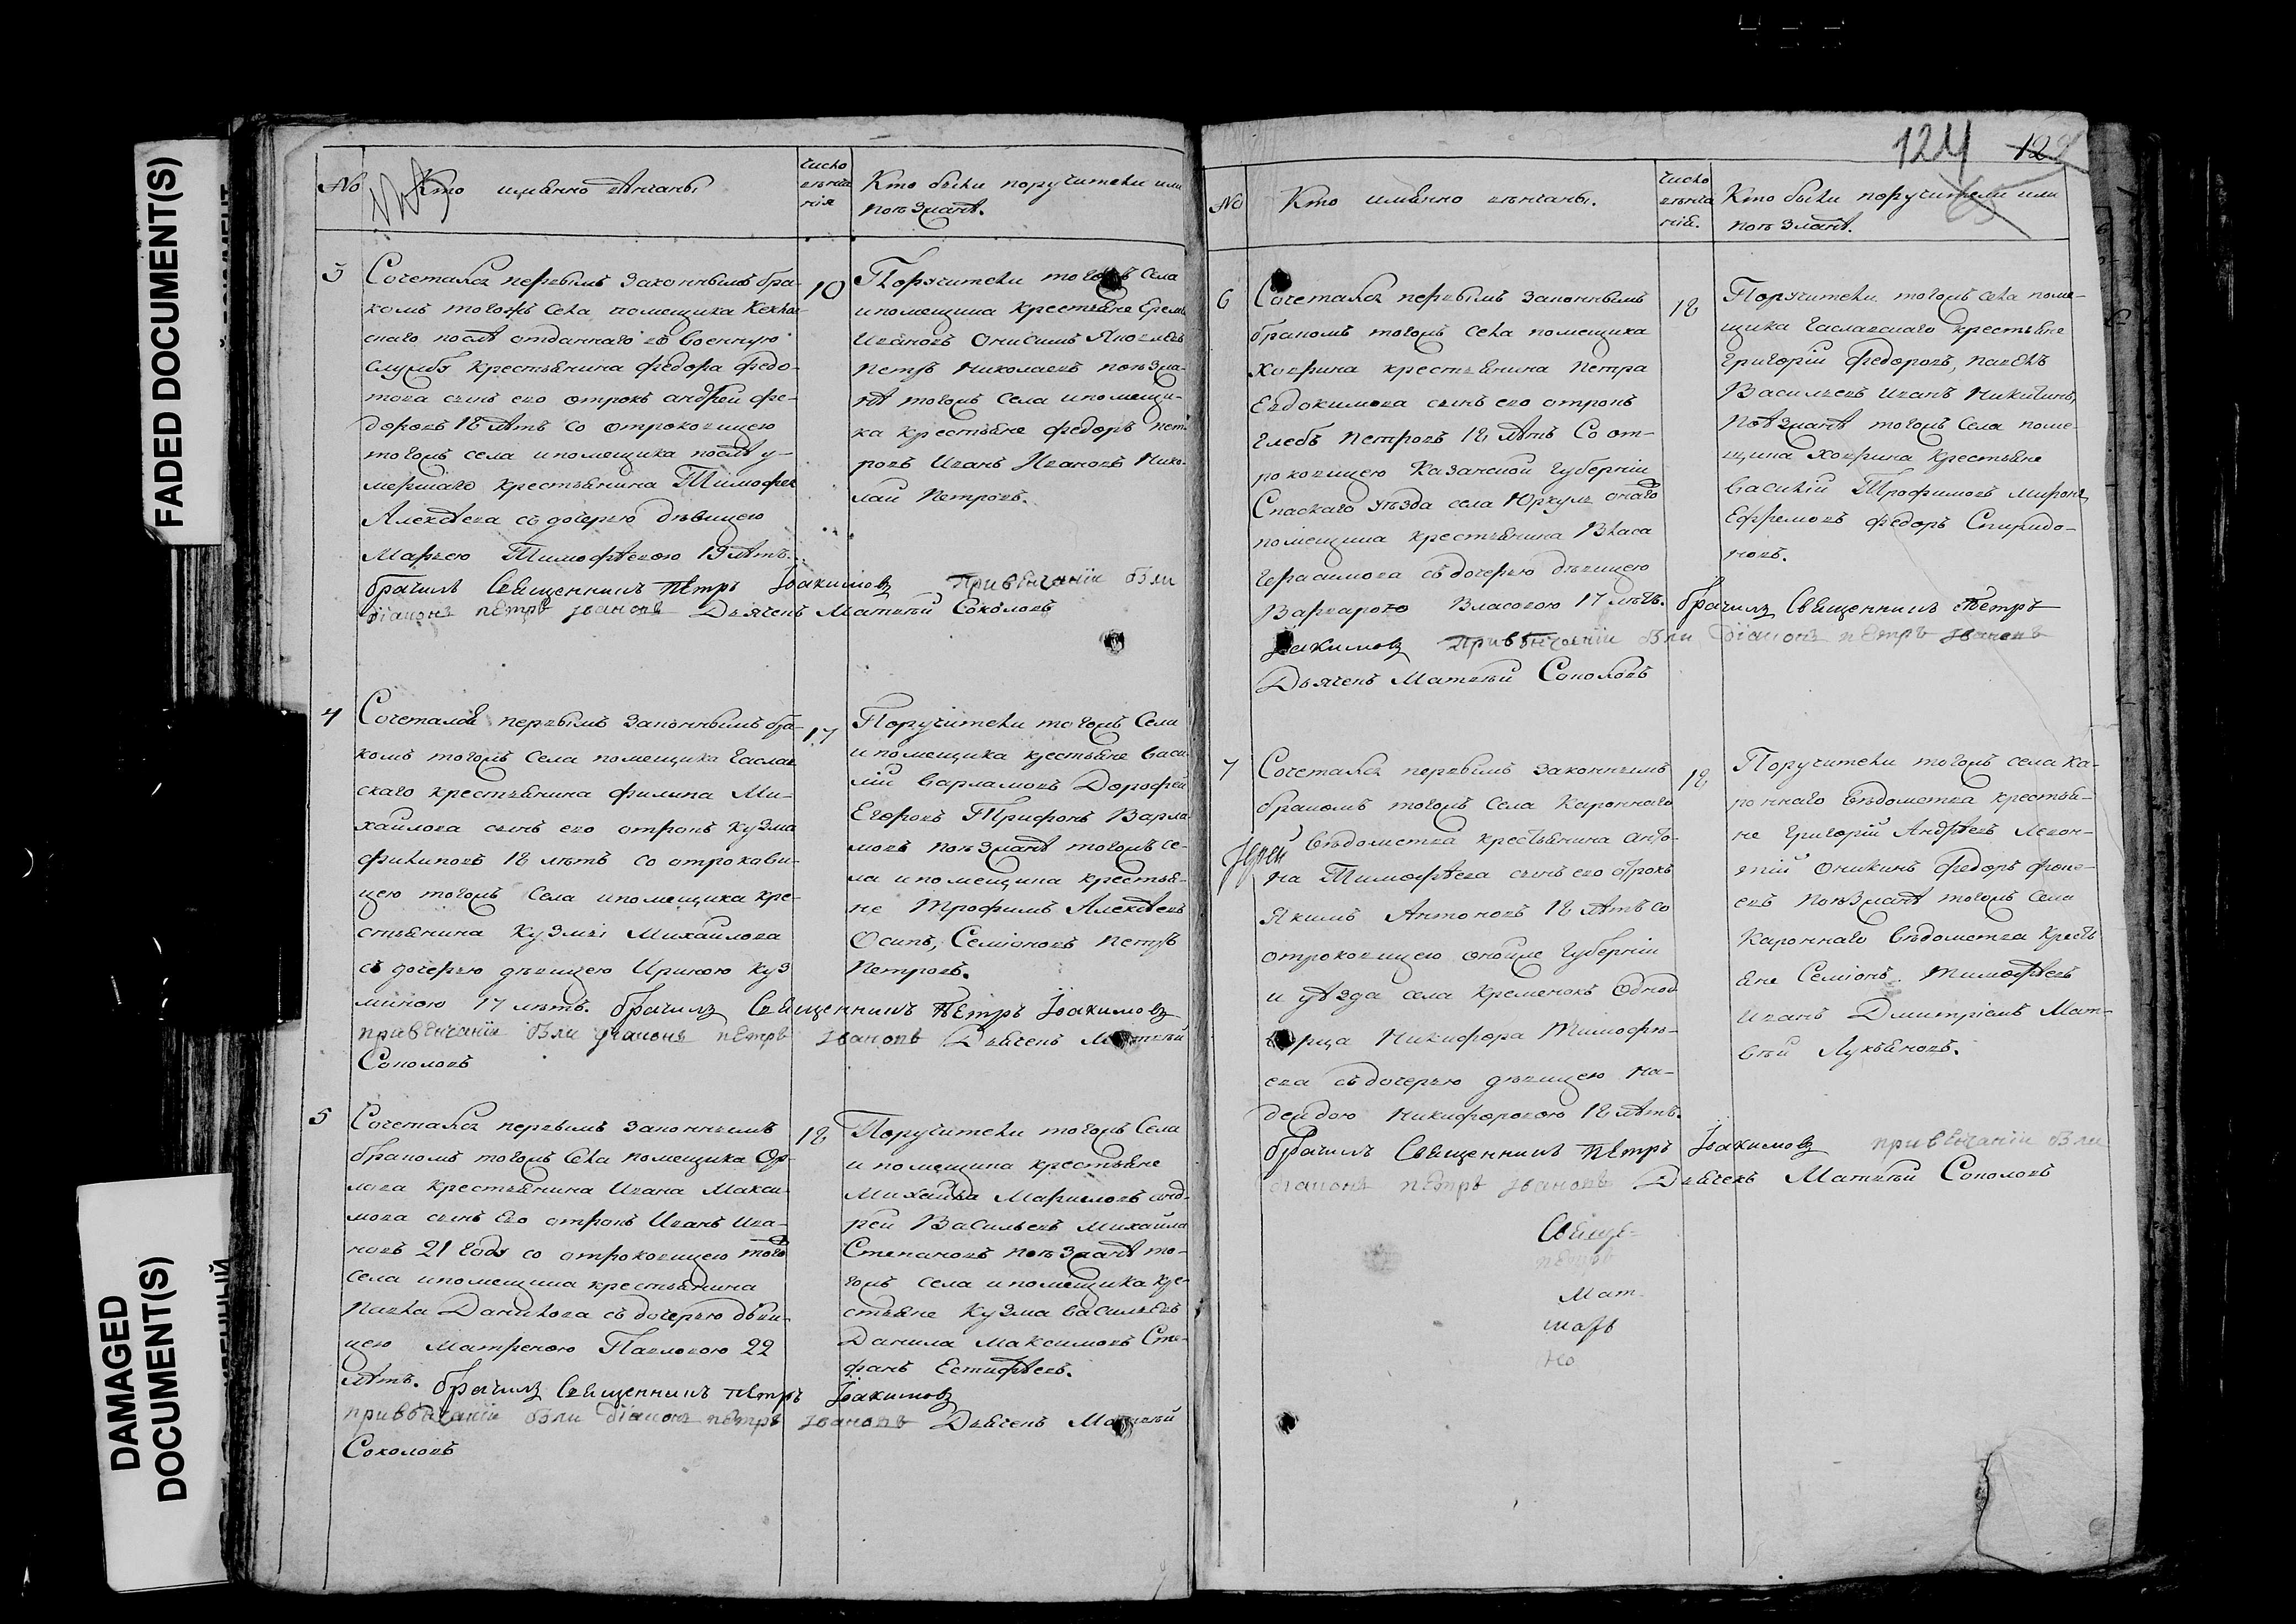 FADED DOCUMENT(S)
DAMAGED
DOCUMENT(S)
No
Кто имѣнно вѣнчаны
Число
вѣнча
нія
Кто были поручители или
поѣзжанѣ.
3
Сочетался первымъ законнымъ бра-
комъ тогожъ села помещика
скаго послѣ отданнаго въ военную
службу крестьянина Федора Федо-
това сынъ его отрокъ андрей фе-
доровъ 18 лѣтъ со отроковицею
тогожъ села и помещика послѣ у-
мершаго крестьянина Тимофея
Алексѣева съ дочерью дѣвицею
Марѳею Тимофѣевою 19 лѣтъ.
10
Поручители тогожъ села
и помещика крестьяне Еремѣ
Ивановъ Онисимъ Яковлевъ
Петръ Николаевъ поѣзжа-
нѣ тогожъ села и помещи-
ка крестьяне федоръ пет-
ровъ Иванъ Ивановъ Нико-
лай Петровъ.
брачилъ Священникъ Петръ Іоакимовъ При вѣнчаніи были
діаконъ петръ Ивановъ Дьячекъ Матвѣй Соколовъ
4
Сочетался первымъ законнымъ бра-
комъ тогожъ села помещика Часлав
скаго крестьянина филипа Ми-
хайлова сынъ его отрокъ кузма
филиповъ 18 лѣтъ со отрокови-
цею тогожъ села и помещика кре-
стьянина Кузмы Михайлова
съ дочерью дѣвицею Ириною Куз
миною 17 лѣтъ. брачилъ Священникъ Петръ Іоакимовъ
при вѣнчаніи были діаконъ петръ Ивановъ Дьячекъ Матвѣй
Соколовъ
17
Поручители тогожъ села
и помещика крестьяне Васи
лій Варламовъ Дорофей
Егоровъ Трифонъ Варла
мовъ поѣзжанѣ тогожъ се-
ла и помещика крестья-
не Трофимъ Алексѣевъ
Осипъ, Семіоновъ Петръ
Петровъ.
5
Сочетался первымъ законнымъ
бракомъ тогожъ села помещика Ор-
лова крестьянина Ивана Макси
мова сынъ его отрокъ Иванъ Ива-
новъ 21 году со отроковицею того
села и помещика крестьянина
Павла Данилова съ дочерью дѣви-
цею Матреною Павловою 22
лѣтъ. брачилъ Священникъ Петръ Іоакимовъ
при вѣнчаніи были діаконъ петръ Ивановъ Дьячекъ Матвѣй
Соколовъ
18
Поручители тогожъ села
и помещика крестьяне
Михайла Марковъ анд-
рей Васильевъ Михайла
Степановъ поѣзжанѣ то-
гожъ села и помещика кре-
стьяне Кузма Васильевъ
Данила Максимовъ Сте-
фанъ Естифѣевъ.
124
No
Кто имѣнно вѣнчаны.
Число
вѣнча
нія.
Кто были поручители или
поѣзжанѣ.
6
Сочетался первымъ законнымъ
бракомъ тогожъ села помещика
Ховрина крестьянина Петра
Евдокимова сынъ его отрокъ
Глебъ Петровъ 18 лѣтъ Со от-
роковицею Казанской Губерніи
Спаскаго уѣзда села Юркуль онаго
помещика крестьянина Власа
Герасимова съ дочерью дѣвицею
Варварою Власовою 17 лѣтъ. брачилъ Священникъ Петръ
Іоакимовъ При вѣнчаніи были діаконъ петръ Ивановъ
Дьячекъ Матвѣй Соколовъ
18
Поручители тогожъ села поме-
щика Чаславскаго крестьяне
Григорій федоровъ, павелъ
Васильевъ Иванъ Никитинъ,
поѣзжанѣ тогожъ села поме
щика Ховрина крестьяне
Василій Трофимовъ Миронъ
Ефремовъ федоръ Спиридо-
новъ.
7
Сочетался первымъ законнымъ
бракомъ тогожъ села Каронного
вѣдомства крестьянина анто-
на Тимофѣева сынъ его отрокъ
Якимъ Антоновъ 18 лѣтъ со
отроковицею оной же Губерніи
и уѣзда села Кременокъ Однод
ворца Никифора Тимофѣ-
ева съ дочерью дѣвицею На-
деждою Никифоровою 18 лѣтъ.
брачилъ Священникъ Петръ Іоакимовъ при вѣнчаніи были
діаконъ петръ Ивановъ Дьячекъ Матвѣй Соколовъ
Іерей
18
Поручители тогожъ села Ка-
роннаго вѣдомства крестья-
не Григорій Андрѣевъ Леон-
тій Оникинъ федоръ фоке-
евъ поѣзжанѣ тогожъ села
Кароннаго вѣдомства кресть
яне Семіонъ Тимофѣевъ
Иванъ Дмитріевъ Мат-
вѣй Лукьяновъ.
Свяще-
петръ
Мат-